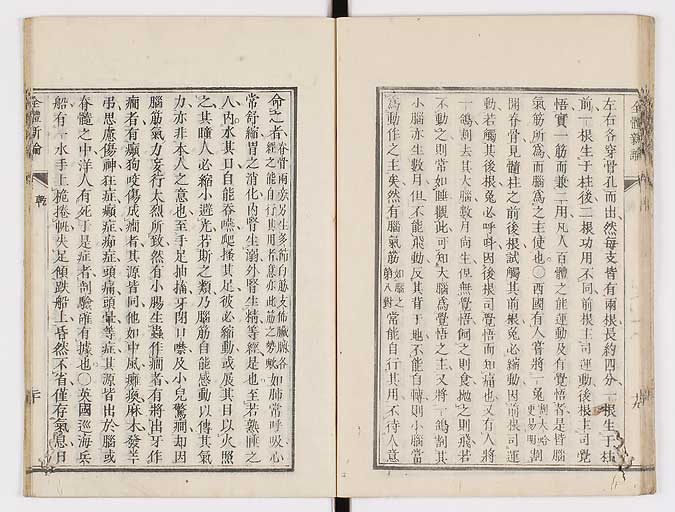 全體新論
左右各穿骨孔而出然每支皆有兩根長約四分一根生于柱
前一根生于柱後二根功用不同前根主司運動後根主司覺
悟實一筋而兼二用凡人百體之能運動及有覺悟者是皆腦
氣筋所爲而腦爲之主使也○西國有人嘗將一兔割大哈更易明割
開脊骨見髓柱之前後根試觸其前根兔必縮動因前根司運
動若觸其後根兔必呼叫因後根司覺悟而知痛也又有人將
一鴿割去其大腦數月尚生但無覺悟飼之則食抛之則飛若
不動之則常如睡觀此可知大腦爲覺悟之主又將一鴿割其
小腦亦生數月但不能飛動反其背于地不能自轉則小腦當
爲動作之主矣然有腦氣筋如腦之第八對常能自行其用不待人意
命之者脊骨兩旁另生多節白筋支佈臟腑各經之能自行其用者意亦此筋之勢歟如肺常呼吸心
常舒縮胃之消化內腎生溺外腎生精等經是也至若熟睡之
人內水其口自能吞嚥爬搔其足彼必縮動或展其目以火照
之其瞳人必縮小避光若斯之類乃腦筋自能感動以傳其氣
力亦非本人之意也至手足抽搐牙閉口噤及小兒驚癎却因
腦筋氣力妄行太烈所致然有小腸生蟲作癎者有將出牙作
癎者有癲狗咬傷成癎者其源皆同他如中風癱瘓麻木發羊
弔思慮傷神狂症癲症痴症頭痛頭暈等症其源皆出於腦或
脊髓之中洋人有死于是症者剖驗確有據也○英國巡海兵
船有一水手上桅捲帆失足傾跌船上昏然不省僅存氣息日
全體新論
乾
二十